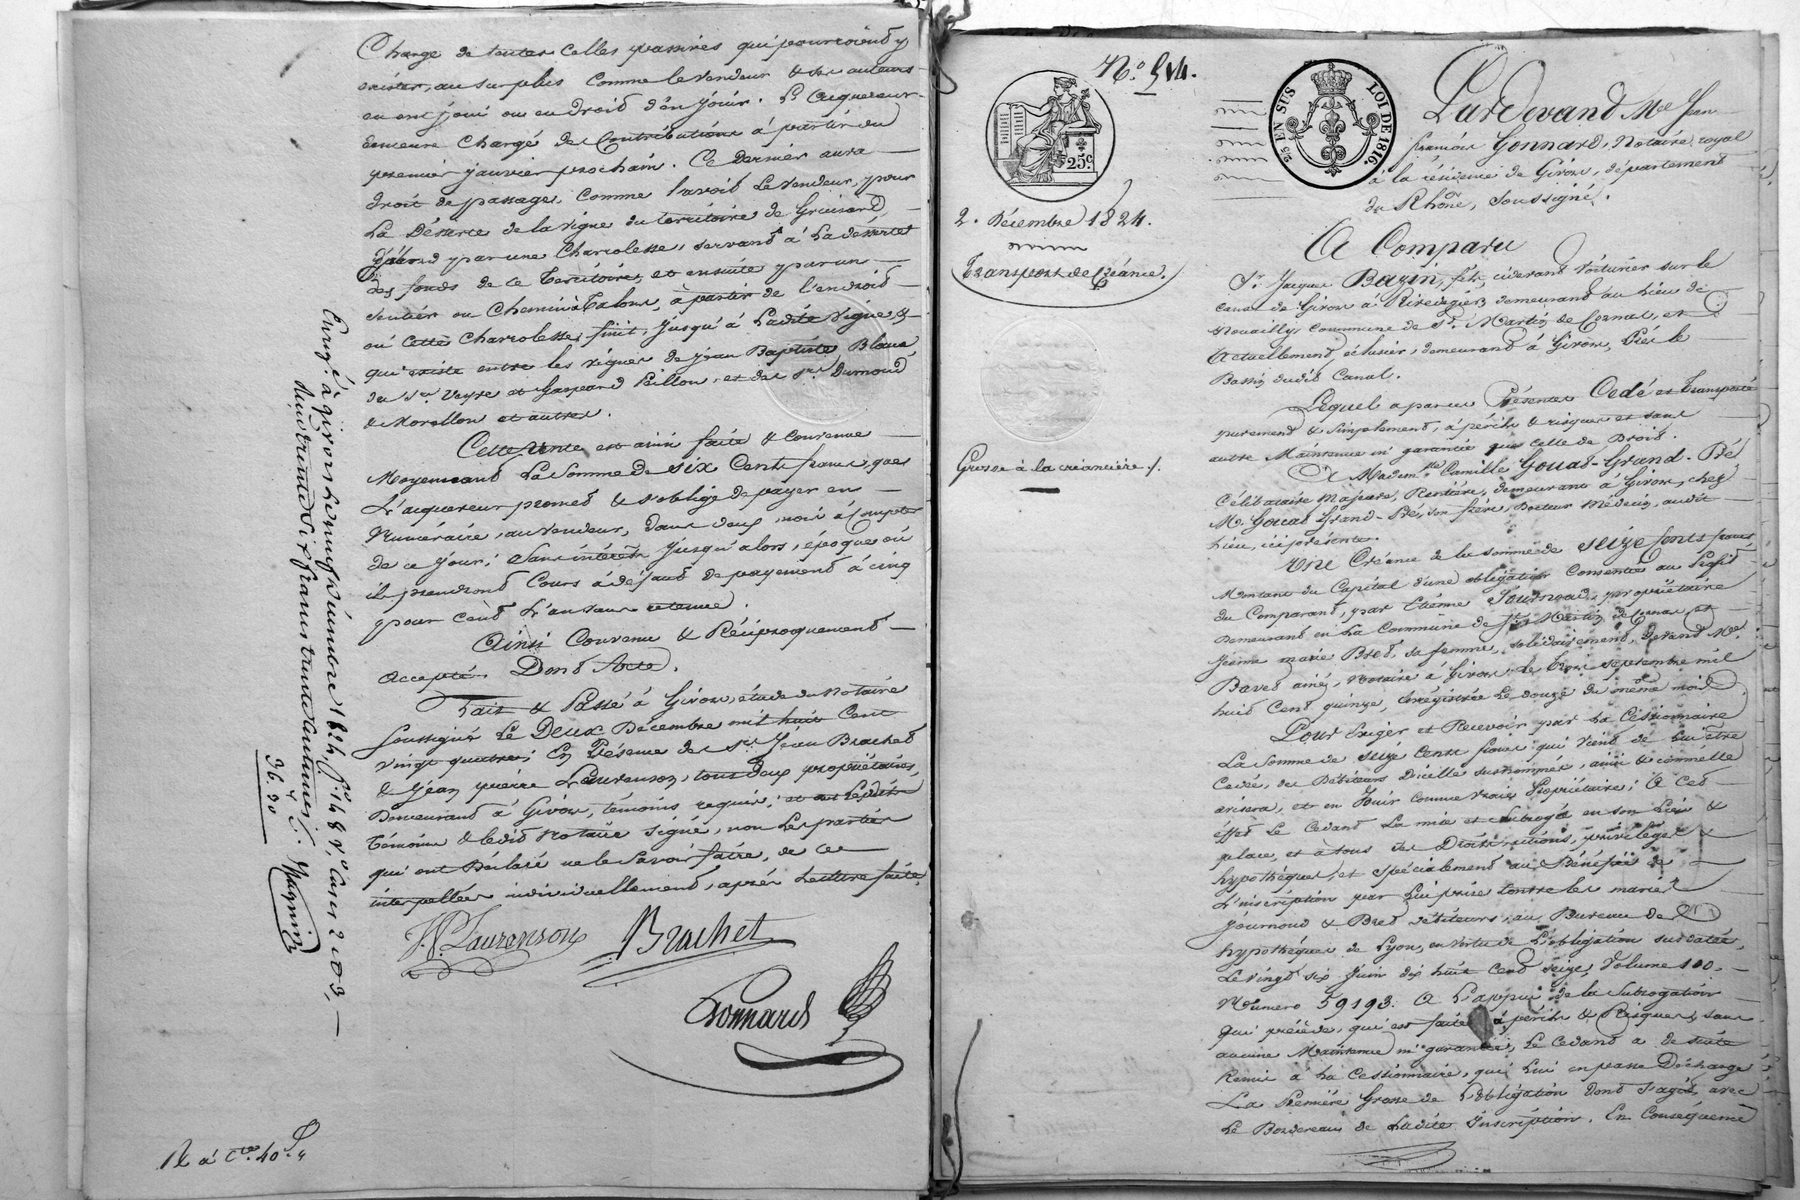 Charge de toutes celles passives qui pourroient y
exister, au surplus comme le vendeur & ses auteurs
en ont joui ou eu droit d'en jouir. L'acquereur
demeure chargé des Contributions à partir du
premier janvier prochain. Ce dernier aura
droit de passage, comme l'avoit Le vendeur, pour
La Désserte de la vigne du territoire de
d'abord par une Charcolesse, servant à La desserte
des fonds de ce Territoire, et ensuite par un
sentier ou Chemin à Talons, à partir de l'endroit
où Cette Charcolesse finit, jusqu'à Ladite vigne, &
qui existe entre les vignes de jean Baptiste Blanc
du Sr. Veyre et Gaspard Paillon, et des Srs. Dumond
& Morellon et autres.
Cette vente est ainsi faite & Convenue
Moyennant La Somme de six Cents francs, que
L'acquereur promet & s'oblige de payer en
Numéraire, au vendeur, dans deux mois à Compter
de ce jour; Sans intérêts jusqu'alors, époque où
ils prendront Cours à déffaut de payement à cinq
pour cent L'an sans retenue.
Ainsi Convenu & Réciproquement
Accepté. Dont Acte.
Fait & Passé à Givors, étude du Notaire
soussigné Le Deux Décembre mil huit Cent
vingt quatre; En Présence de Srs. Jean Brachet
& Jean pierre Laurenson, tous deux propriétaires,
Demeurant à Givors, témoins requis; et ont Lesdits
Témoins & ledit Notaire signé, non Les parties
qui ont Déclaré ne le Savoir faire, de ce
interpellées individuellement, après Lecture faite.
J.P. Laurenson Brachet
Gonnard
Enregé. à givors Le neuf décembre 1824, fo. 148 vo. Cases 2 et 3,
Reçu trente six francs trente centimes
36.30
R a Cte 40 4
No. 514.
25c.
2. Décembre 1824.
Transport de Créance.
Grosse à la créancière.
25 EN SUS LOI DE 1816.
Pardevant Me. Jean
françois Gonnard, Notaire royal
à la résidence de Givors, département
du Rhône, Soussigné.
A Comparu
Sr. Jacques Bazin, fils, cidevant voiturier sur le
canal de Givors à Rivedegier, demeurant au lieu de
Nouailly, commune de St. Martin de Cornas, et
Actuellement éclusier, demeurant à Givors, Près le
Bassin dudit Canal.
Lequel a par ces Présentes Cédé et Transporté
purement & simplement, à périls & risques et sans
autre Maintenue ni garantie que celle de Droit.
A Madememlle Camille Gouat-Grand-Pré
Célibataire Majeure, Rentière, demeurant à Givors, chez
M. Gouat Grand-Pré, son frère, Docteur Médecin, audit
Lieu, ici présente.
Une Créance de la somme de seize Cents francs
Montant du Capital d'une obligation Consentie au Profit
du Comparant, par Etienne Journoud, propriétaire
Demeurant en La Commune de St. Martin de Cornas et
Jeanne marie Bret, sa femme, solidairement, devant Me.
Baret ainé, Notaire à Givors, le Trois septembre mil
huit cent quinze, Enregistrée Le douze du même mois.
Pour Exiger et Recevoir par La Cessionnaire
La Somme de seize Cents francs qui vient de Lui être
Cedée, des Débiteurs D'icelle susnommés, ainsi & comme elle
avisera, et en Jouir comme vraie Propriétaire; A Cet
éffet Le Cedant La mise et subrogé en son Lieu &
place, et à tous ses Droits, actions, privilèges
hypothèques, et Spécialement au Bénéfice de
L'inscription par Lui prise Contre les mariés
Journoud & Bret débiteurs, au Bureau des
hypothèques de Lyon, en vertu de L'obligation susdatée,
Le vingt six Juin dix huit cent seize, Volume 100.
Numéro 59193. A L'appui de la Subrogation
qui précède, qui est faite à périls & Risques, sans
aucune Maintenue ni garantie, Le Cedant a de suite
Remis à La Cessionnaire, qui Lui en passe Décharge
La Première Grosse de L'obligation dont s'agit, avec
Le Bordereau de Ladite Inscription. En Conséquence